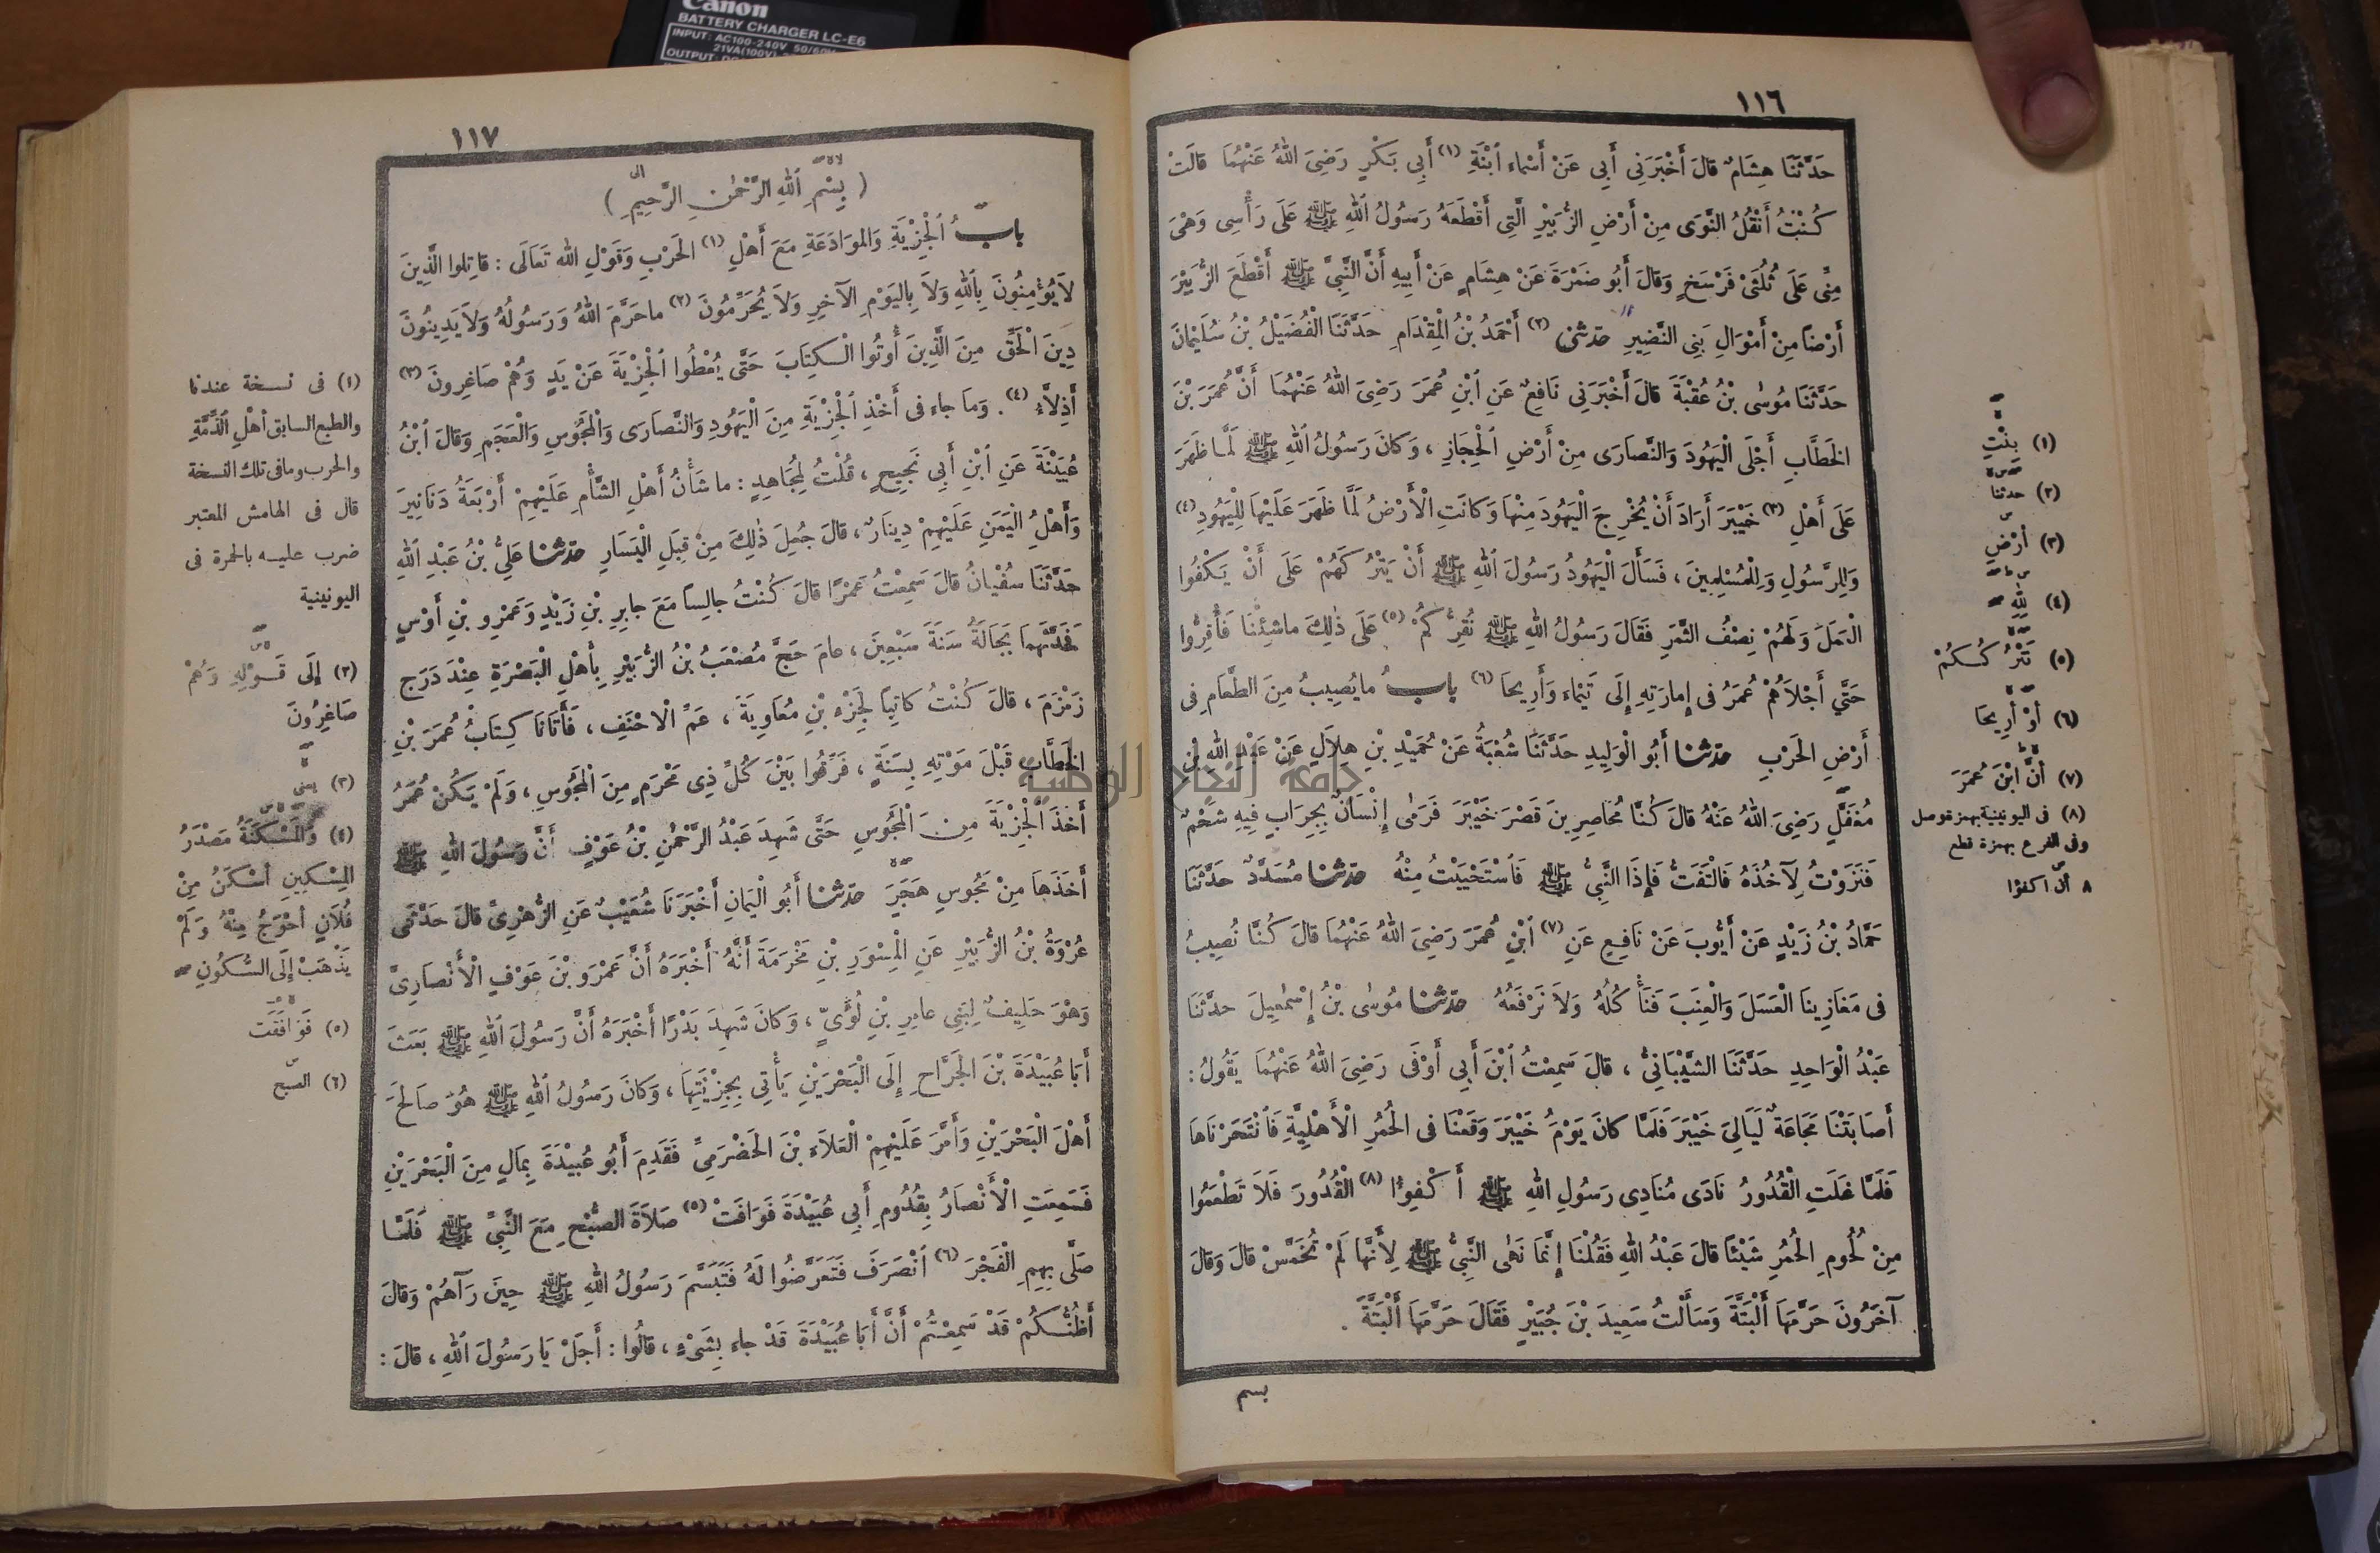 Canon
BATTERY CHARGER LC-E6
INPUT: AC100-240V 50/60H
21VA(100V)
OUTPUT: DC
١١٦
حَدَّثَنَا هِشَامٌ قَالَ أَخْبَرَنِى أَبِى عَنْ أَسْمَاءَ ٱبْنَةِ (١) أَبِى بَكْرٍ رَضِىَ اللهُ عَنْهُمَا قَالَتْ
كُنْتُ أَنْقُلُ النَّوَى مِنْ أَرْضِ الزُّبَيْرِ الَّتِى أَقْطَعَهُ رَسُولُ اللهِ ﷺ عَلَى رَأْسِى وَهْىَ
مِنِّى عَلَى ثُلُثَىْ فَرْسَخٍ وَقَالَ أَبُو ضَمْرَةَ عَنْ هِشَامٍ عَنْ أَبِيهِ أَنَّ النَّبِىَّ ﷺ أَقْطَعَ الزُّبَيْرَ
أَرْضًا مِنْ أَمْوَالِ بَنِى النَّضِيرِ حدّثنى (٢) أَحْمَدُ بْنُ الْمِقْدَامِ حَدَّثَنَا الْفُضَيْلُ بْنُ سُلَيْمَانَ
حَدَّثَنَا مُوسَى بْنُ عُقْبَةَ قَالَ أَخْبَرَنِى نَافِعٌ عَنِ ٱبْنِ عُمَرَ رَضِىَ اللهُ عَنْهُمَا أَنَّ عُمَرَ بْنَ
الخَطَّابِ أَجْلَى الْيَهُودَ وَالنَّصَارَى مِنْ أَرْضِ الْحِجَازِ ، وَكَانَ رَسُولُ اللهِ ﷺ لَمَّا ظَهَرَ
عَلَى أَهْلِ (٣) خَيْبَرَ أَرَادَ أَنْ يُخْرِجَ الْيَهُودَ مِنْهَا وَكَانَتِ الْأَرْضُ لَمَّا ظَهَرَ عَلَيْهَا لِلْيَهُودِ (٤)
وَلِلرَّسُولِ وَلِلْمُسْلِمِينَ ، فَسَأَلَ الْيَهُودُ رَسُولَ اللهِ ﷺ أَنْ يَتْرُكَهُمْ عَلَى أَنْ يَكْفُوا
الْعَمَلَ وَلَهُمْ نِصْفُ الثَّمَرِ فَقَالَ رَسُولُ اللهِ ﷺ نُقِرُّكُمْ (٥) عَلَى ذٰلِكَ مَا شِئْنَا فَأُقِرُّوا
حَتَّى أَجْلَاهُمْ عُمَرُ فى إِمَارَتِهِ إِلَى تَيْمَاءَ وَأَرِيحَا (٦) بابُ مَا يُصِيبُ مِنَ الطَّعَامِ فِى
أَرْضِ الحَرْبِ حدّثنا أَبُو الْوَلِيدِ حَدَّثَنَا شُعْبَةُ عَنْ حُمَيْدِ بْنِ هِلَالٍ عَنْ عَبْدِ اللهِ بْنِ
مُغَفَّلٍ رَضِىَ اللهُ عَنْهُ قَالَ كُنَّا مُحَاصِرِينَ قَصْرَ خَيْبَرَ فَرَمَى إِنْسَانٌ بِجِرَابٍ فِيهِ شَحْمٌ
فَنَزَوْتُ لِآخُذَهُ فَالْتَفَتُّ فَإِذَا النَّبِىُّ ﷺ فَٱسْتَحْيَيْتُ مِنْهُ حدّثنا مُسَدَّدٌ حَدَّثَنَا
حَمَّادُ بْنُ زَيْدٍ عَنْ أَيُّوبَ عَنْ نَافِعٍ عَنِ (٧) ٱبْنِ عُمَرَ رَضِىَ اللهُ عَنْهُمَا قَالَ كُنَّا نُصِيبُ
فى مَغَازِينَا الْعَسَلَ وَالْعِنَبَ فَنَأْكُلُهُ وَلَا نَرْفَعُهُ حدّثنا مُوسَى بْنُ إِسْمٰعِيلَ حَدَّثَنَا
عَبْدُ الْوَاحِدِ حَدَّثَنَا الشَّيْبَانِىُّ ، قَالَ سَمِعْتُ ٱبْنَ أَبِى أَوْفَى رَضِىَ اللهُ عَنْهُمَا يَقُولُ :
أَصَابَتْنَا مَجَاعَةٌ لَيَالِىَ خَيْبَرَ فَلَمَّا كَانَ يَوْمُ خَيْبَرَ وَقَعْنَا فى الْحُمُرِ الْأَهْلِيَّةِ فَٱنْتَحَرْنَاهَا
فَلَمَّا غَلَتِ الْقُدُورُ نَادَى مُنَادِى رَسُولِ اللهِ ﷺ أَكْفِؤُا (٨) الْقُدُورَ فَلَا تَطْعَمُوا
مِنْ لُحُومِ الْحُمُرِ شَيْئًا قَالَ عَبْدُ اللهِ فَقُلْنَا إِنَّمَا نَهَى النَّبِىُّ ﷺ لِأَنَّهَا لَمْ تُخَمَّسْ قَالَ وَقَالَ
آخَرُونَ حَرَّمَهَا أَلْبَتَّةَ وَسَأَلْتُ سَعِيدَ بْنَ جُبَيْرٍ فَقَالَ حَرَّمَهَا أَلْبَتَّةَ .
بسم
(١) بِنْتِ
(٢) حدثنا
(٣) أَرْضِ
(٤) لِلهِ
(٥) نَتْرُكُكُمْ
(٦) أَوْ أَرِيحَا
(٧) أَنَّ ابْنَ عُمَرَ
(٨) فى اليونينية بهمزة وصل
وفى الفرع بهمزة قطع
٨ أَنِ اكفؤا
١١٧
( بِسْمِ ٱللهِ الرَّحْمٰنِ الرَّحِيمِ )
بابُ الْجِزْيَةِ وَالمُوَادَعَةِ مَعَ أَهْلِ (١) الحَرْبِ وَقَوْلِ الله تَعَالَى : قَاتِلُوا الَّذِينَ
لَا يُؤْمِنُونَ بِاللهِ وَلَا بِاليَوْمِ الآخِرِ وَلَا يُحَرِّمُونَ (٢) مَا حَرَّمَ اللهُ وَرَسُولُهُ وَلَا يَدِينُونَ
دِينَ الْحَقِّ مِنَ الَّذِينَ أُوتُوا الْكِتَابَ حَتَّى يُعْطُوا الْجِزْيَةَ عَنْ يَدٍ وَهُمْ صَاغِرُونَ (٣)
أَذِلَّاءُ (٤) . وَمَا جَاءَ فى أَخْذِ الْجِزْيَةِ مِنَ الْيَهُودِ وَالنَّصَارَى وَالْمَجُوسِ وَالْعَجَمِ وَقَالَ ٱبْنُ
عُيَيْنَةَ عَنِ ٱبْنِ أَبِى نَجِيحٍ ، قُلْتُ لِمُجَاهِدٍ : مَا شَأْنُ أَهْلِ الشَّأْمِ عَلَيْهِمْ أَرْبَعَةُ دَنَانِيرَ
وَأَهْلُ الْيَمَنِ عَلَيْهِمْ دِينَارٌ ، قَالَ جُعِلَ ذٰلِكَ مِنْ قِبَلِ الْيَسَارِ حدّثنا عَلِىُّ بْنُ عَبْدِ اللهِ
حَدَّثَنَا سُفْيَانُ قَالَ سَمِعْتُ عَمْرًا قَالَ كُنْتُ جَالِسًا مَعَ جَابِرِ بْنِ زَيْدٍ وَعَمْرِو بْنِ أَوْسٍ
فَحَدَّثَهُمَا بَجَالَةُ سَنَةَ سَبْعِينَ ، عَامَ حَجَّ مُصْعَبُ بْنُ الزُّبَيْرِ بِأَهْلِ الْبَصْرَةِ عِنْدَ دَرَجِ
زَمْزَمَ ، قَالَ كُنْتُ كَاتِبًا لِجَزْءِ بْنِ مُعَاوِيَةَ ، عَمِّ الْاحْنَفِ ، فَأَتَانَا كِتَابُ عُمَرَ بْنِ
الخَطَّابِ قَبْلَ مَوْتِهِ بِسَنَةٍ ، فَرِّقُوا بَيْنَ كُلِّ ذِى مَحْرَمٍ مِنَ الْمَجُوسِ ، وَلَمْ يَكُنْ عُمَرُ
أَخَذَ الْجِزْيَةَ مِنَ الْمَجُوسِ حَتَّى شَهِدَ عَبْدُ الرَّحْمٰنِ بْنُ عَوْفٍ أَنَّ رَسُولَ اللهِ ﷺ
أَخَذَهَا مِنْ مَجُوسِ هَجَرٍ حدّثنا أَبُو الْيَمَانِ أَخْبَرَنَا شُعَيْبٌ عَنِ الزُّهْرِىِّ قَالَ حَدَّثَنِى
عُرْوَةُ بْنُ الزُّبَيْرِ عَنِ الْمِسْوَرِ بْنِ مَخْرَمَةَ أَنَّهُ أَخْبَرَهُ أَنَّ عَمْرَو بْنَ عَوْفٍ الْأَنْصَارِىَّ
وَهْوَ حَلِيفٌ لِبَنِى عَامِرِ بْنِ لُؤَىٍّ ، وَكَانَ شَهِدَ بَدْرًا أَخْبَرَهُ أَنَّ رَسُولَ اللهِ ﷺ بَعَثَ
أَبَا عُبَيْدَةَ بْنَ الْجَرَّاحِ إِلَى الْبَحْرَيْنِ يَأْتِى بِجِزْيَتِهَا ، وَكَانَ رَسُولُ اللهِ ﷺ هُوَ صَالَحَ
أَهْلَ الْبَحْرَيْنِ وَأَمَّرَ عَلَيْهِمْ الْعَلَاءَ بْنَ الحَضْرَمِىِّ فَقَدِمَ أَبُو عُبَيْدَةَ بِمَالٍ مِنَ الْبَحْرَيْنِ
فَسَمِعَتِ الْأَنْصَارُ بِقُدُومِ أَبِى عُبَيْدَةَ فَوَافَتْ (٥) صَلَاةَ الصُّبْحِ مَعَ النَّبِىِّ ﷺ فَلَمَّا
صَلَّى بِهِمِ الْفَجْرَ (٦) ٱنْصَرَفَ فَتَعَرَّضُوا لَهُ فَتَبَسَّمَ رَسُولُ اللهِ ﷺ حِينَ رَآهُمْ وَقَالَ
أَظُنُّكُمْ قَدْ سَمِعْتُمْ أَنَّ أَبَا عُبَيْدَةَ قَدْ جَاءَ بِشَىْءٍ ، قَالُوا : أَجَلْ يَا رَسُولَ اللهِ ، قَالَ :
(١) فى نسخة عندنا
والطبع السابق أَهْلِ الذِّمَّةِ
والحرب وما فى تلك النسخة
قال فى الهامش المعتبر
ضرب عليه بالحمرة فى
اليونينية
(٢) إِلَى قَوْلِهِ وَهُمْ
صَاغِرُونَ
(٣) يعنى
(٤) وَالْمَسْكَنَةُ مَصْدَرُ
المِسْكِينِ أَسْكَنُ مِنْ
فُلَانٍ أَحْوَجُ مِنْهُ وَلَمْ
يَذْهَبْ إِلَى السُّكُونِ
(٥) فَوَافَقَت
(٦) الصبح
جامعة النجاح الوطنية